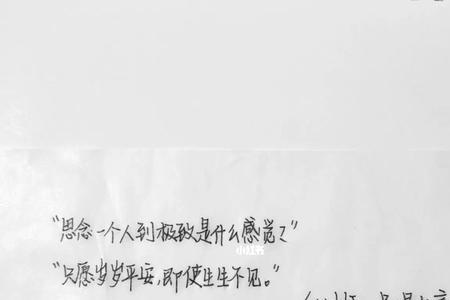 “思念一个人到极致是什么感觉？”
小红书
“只愿岁岁平安，即使生生不见。”